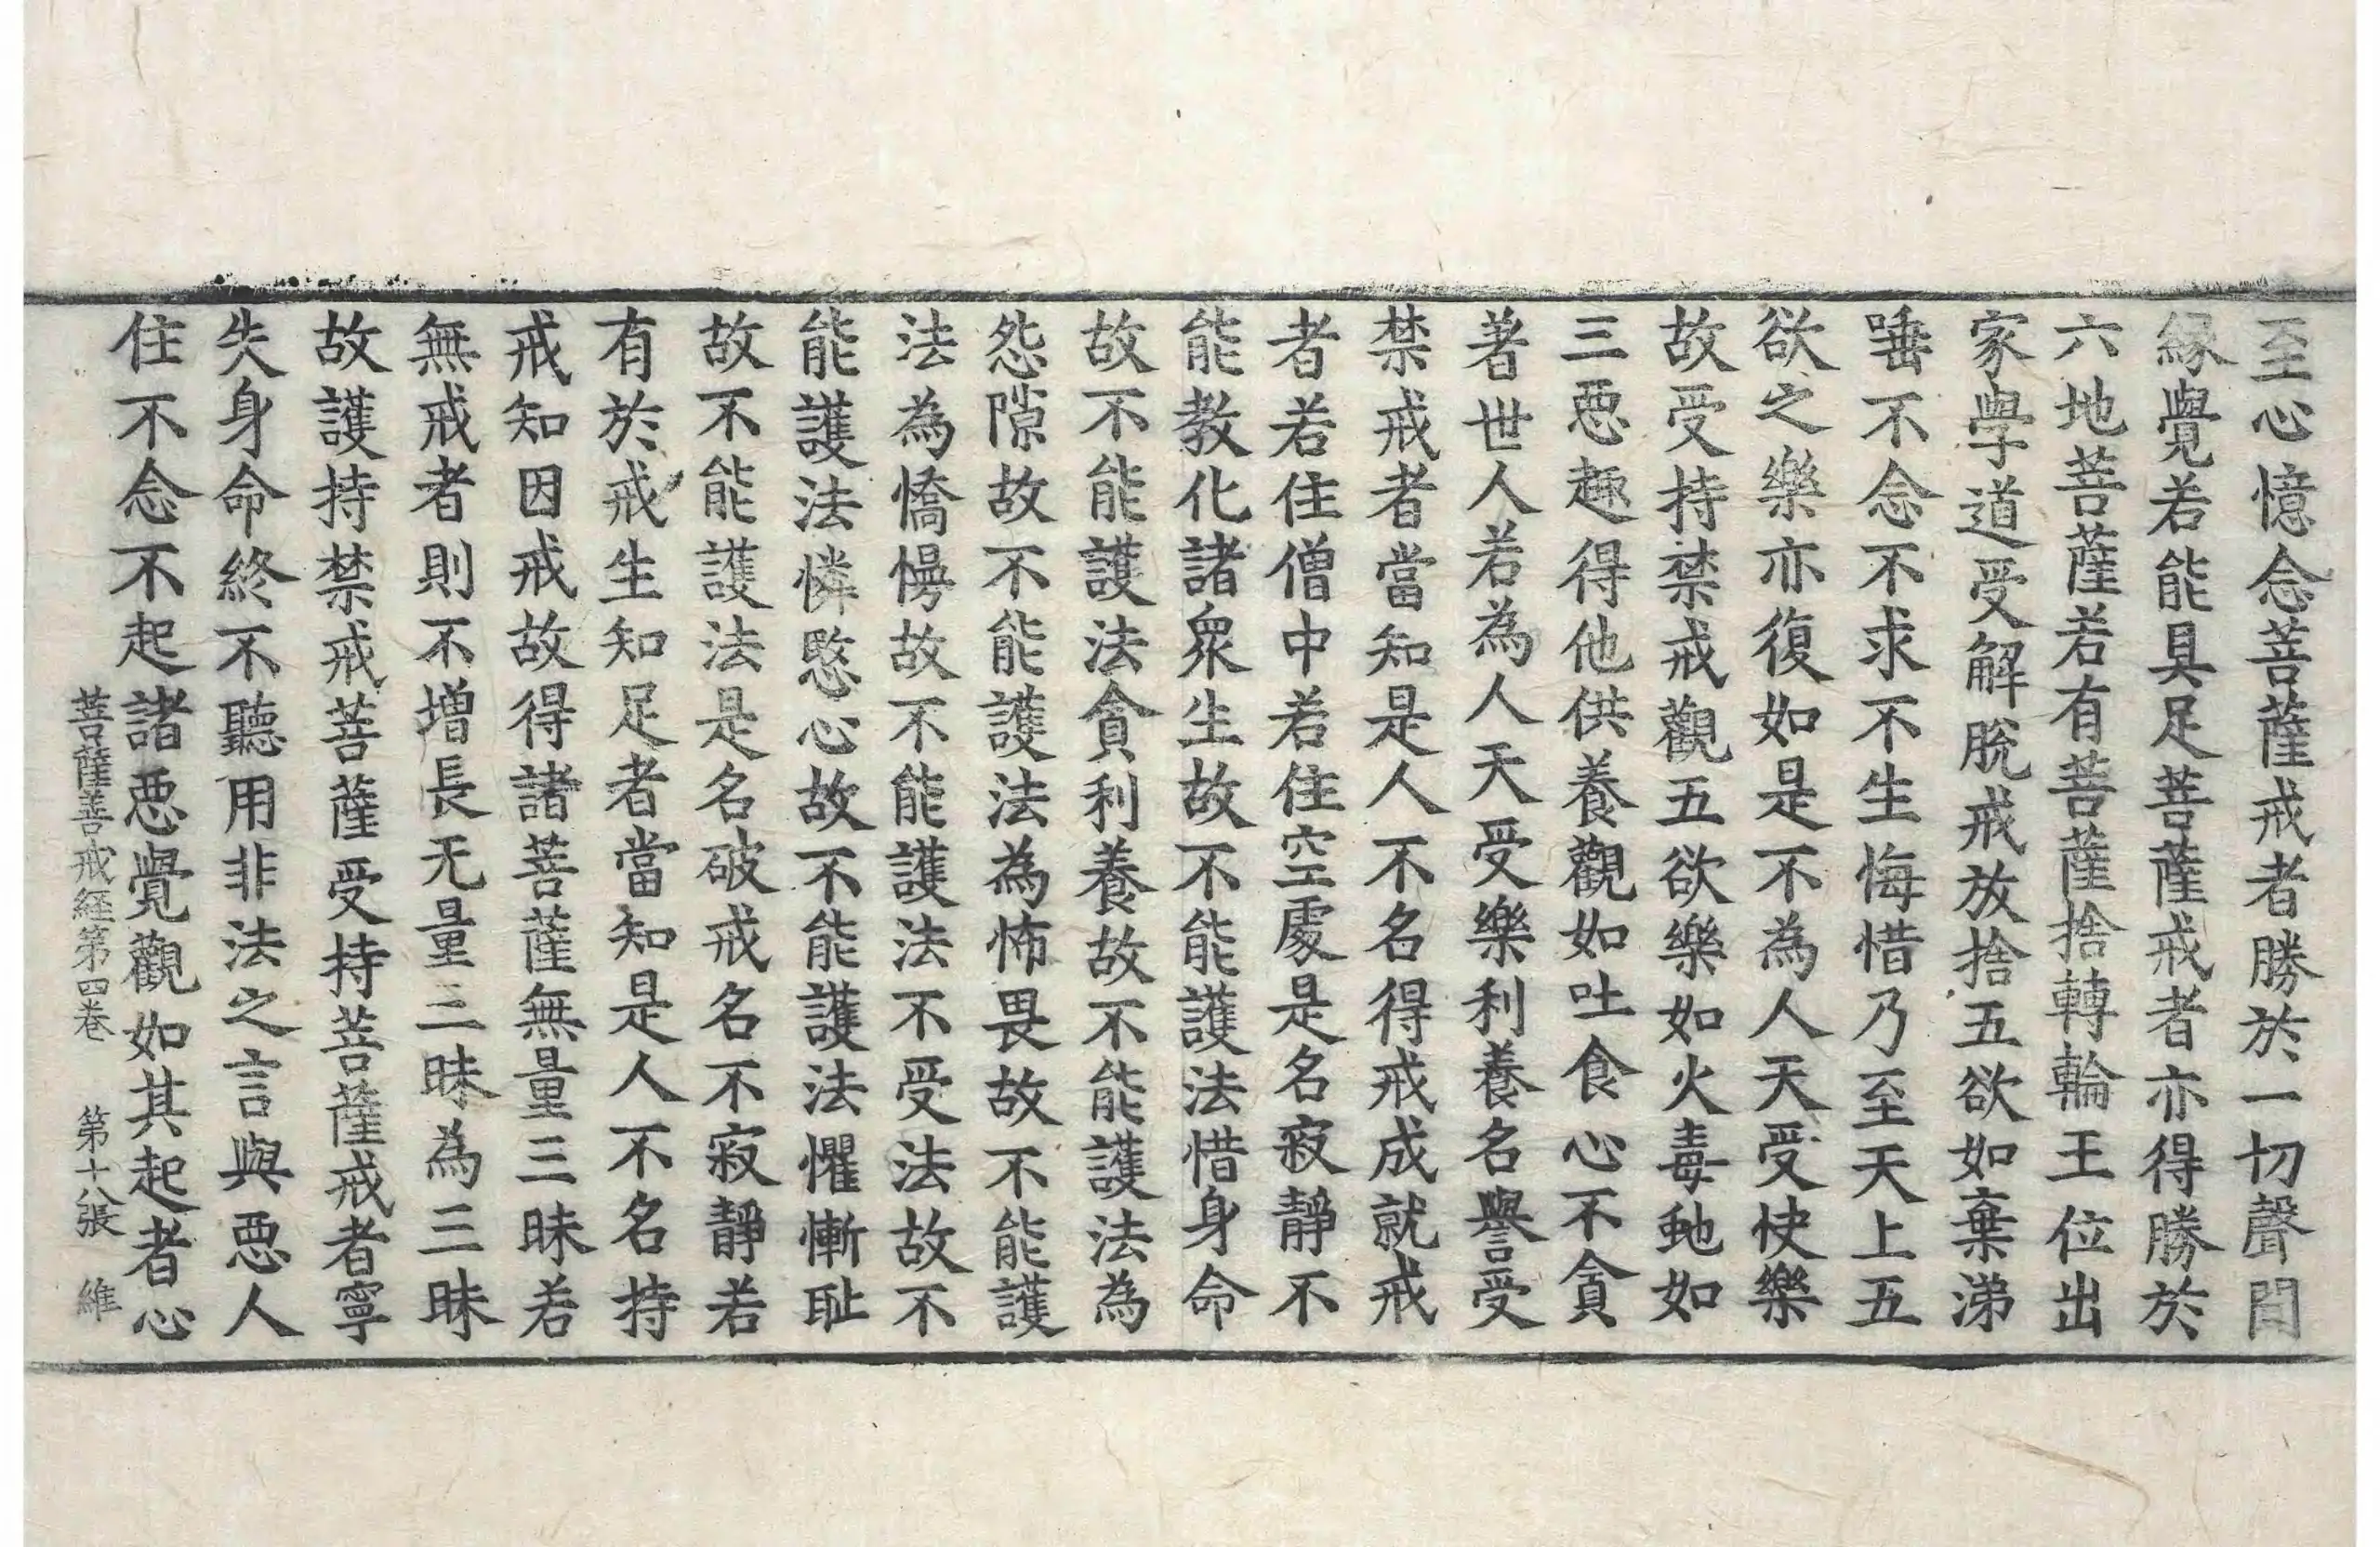 至心憶念菩薩戒者勝於一切聲聞
縁覺若能具足菩薩戒者亦得勝於
六地菩薩若有菩薩捨轉輪王位出
家學道受解脫戒放捨五欲如棄涕
唾不念不求不生悔惜乃至天上五
欲之樂亦復如是不為人天受快樂
故受持禁戒觀五欲樂如火毒虵如
三惡趣得他供養觀如吐食心不貪
著世人若為人天受樂利養名譽受
禁戒者當知是人不名得戒成就戒
者若住僧中若住空處是名寂靜不
能教化諸衆生故不能護法惜身命
故不能護法貪利養故不能護法為
怨隙故不能護法為怖畏故不能護
法為憍慢故不能護法不受法故不
能護法憐愍心故不能護法懼慚耻
故不能護法是名破戒名不寂靜若
有於戒生知足者當知是人不名持
戒知因戒故得諸菩薩無量三昧若
無戒者則不增長无量三昧為三昧
故護持禁戒菩薩受持菩薩戒者寧
失身命終不聽用非法之言與惡人
住不念不起諸惡覺觀如其起者心
菩薩善戒経第四卷 第十八張 維